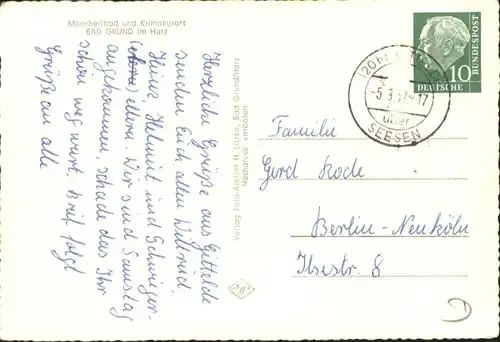 Moorheilbad und Klimakurort
BAD GRUND im Harz
Herzliche Grüße aus Gittelde
senden Euch allen
Heinz, Helmut und Schwieger-
eltern. Wir sind Samstag
angekommen, schade das Ihr
schon weg wart. Brief folgt
Grüße an alle
Verlag Foto-Atelier H. Bad Grund/Harz
Nachdruck verboten
DEUTSCHE BUNDESPOST
10
-17
über
SEESEN
Familie
Gerd Rode
Berlin-Neukölln
Ilsestr. 8